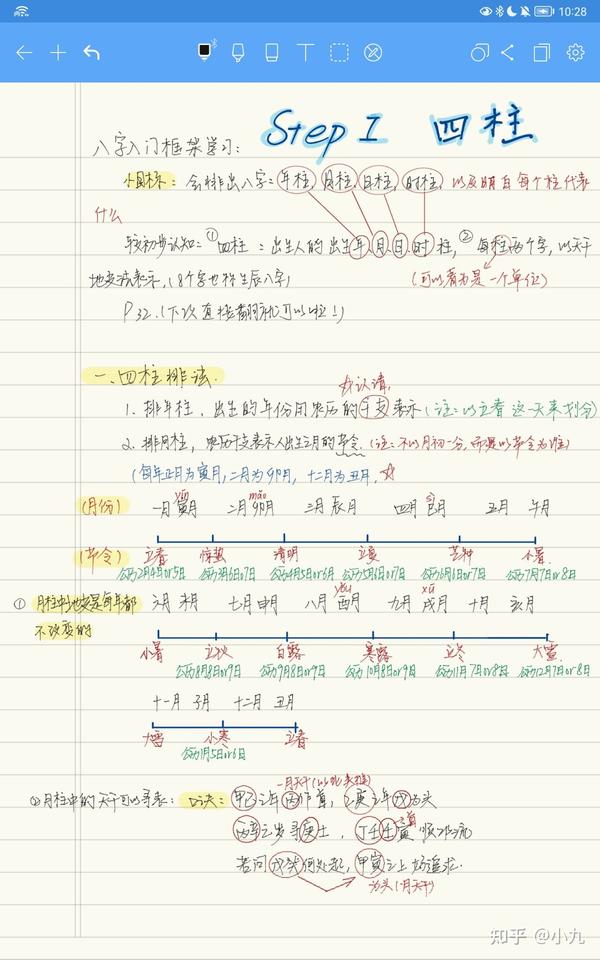 10:28
Step I 四柱
八字入门框架学习:
小目标: 会排出八字: 年柱, 月柱, 日柱, 时柱, 以及明白每个柱代表
什么
较初步认知: ① 四柱: 出生人的出生年月日时柱, ② 每柱两个字, 以天干
地支来表示, (8个字也称生辰八字)
(可以看为是一个单位)
P32. (下次直接翻就可以啦!)
一. 四柱排法.
☆认清,
1. 排年柱, 出生的年份用农历的干支表示 (注: 以立春这一天来划分)
2. 排月柱, 农历干支表示人出生之月的节令. (注: 不以月初一分, 而是以节令为准)
(每年正月为寅月, 二月为卯月, 十二月为丑月, ☆
yín mǎo sì
(月份) 一月 寅月 二月 卯月 三月 辰月 四月 巳月 五月 午月
(节令) 立春 惊蛰 清明 立夏 芒种 小暑
公历2月4or5日 公历3月6or7日 公历4月5or6日 公历5月6or7日 公历6月6or7日 公历7月7or8日
yǒu xū
① 月柱中地支是每年都 六月 未月 七月 申月 八月 酉月 九月 戌月 十月 亥月
不改变的
小暑 立秋 白露 寒露 立冬 大雪
公历8月8or9日 公历9月8or9日 公历10月8or9日 公历11月7or8日 公历12月7or8日
十一月 子月 十二月 丑月
大雪 小寒 立春
公历1月5or6日
一月天干(以此类推)
② 月柱中的天干可以寻表: 口诀: 甲己之年丙作首, 乙庚之年戊为头
丙辛之岁寻庚土, 丁壬壬寅顺水流
若问戊癸何处起, 甲寅之上好追求.
为头(一月天干)
知乎 @小九